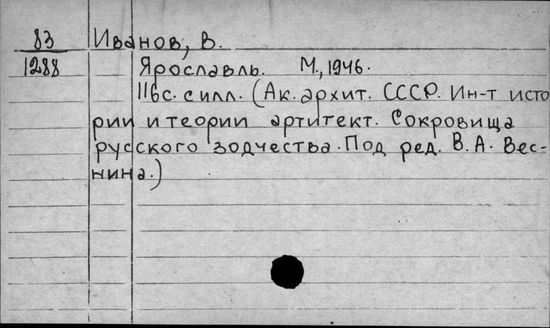 83 Иванов, В.
1288 Ярославль. М., 1946.
116с. с илл. (Ак. архит. СССР. Ин-т исто
рии и теории артитект. Сокровища
русского зодчества. Под ред. В. А. Вес-
нина.)